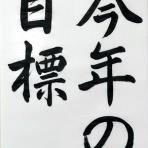 今年の
目標